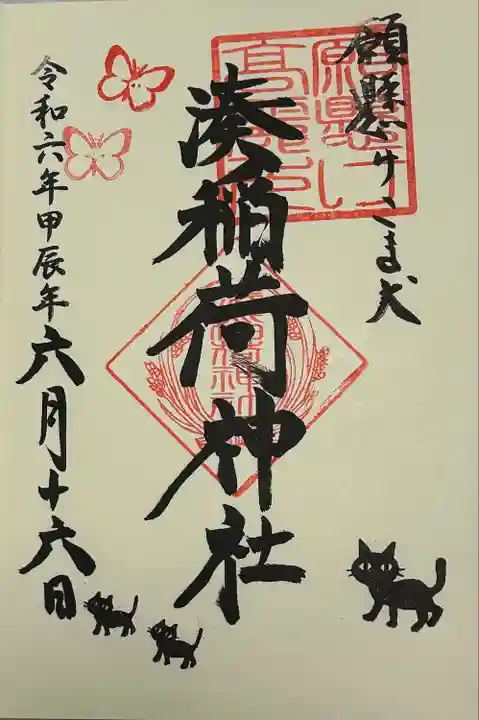 願懸けこま犬
湊稲荷神社
令和六年甲辰年六月十六日